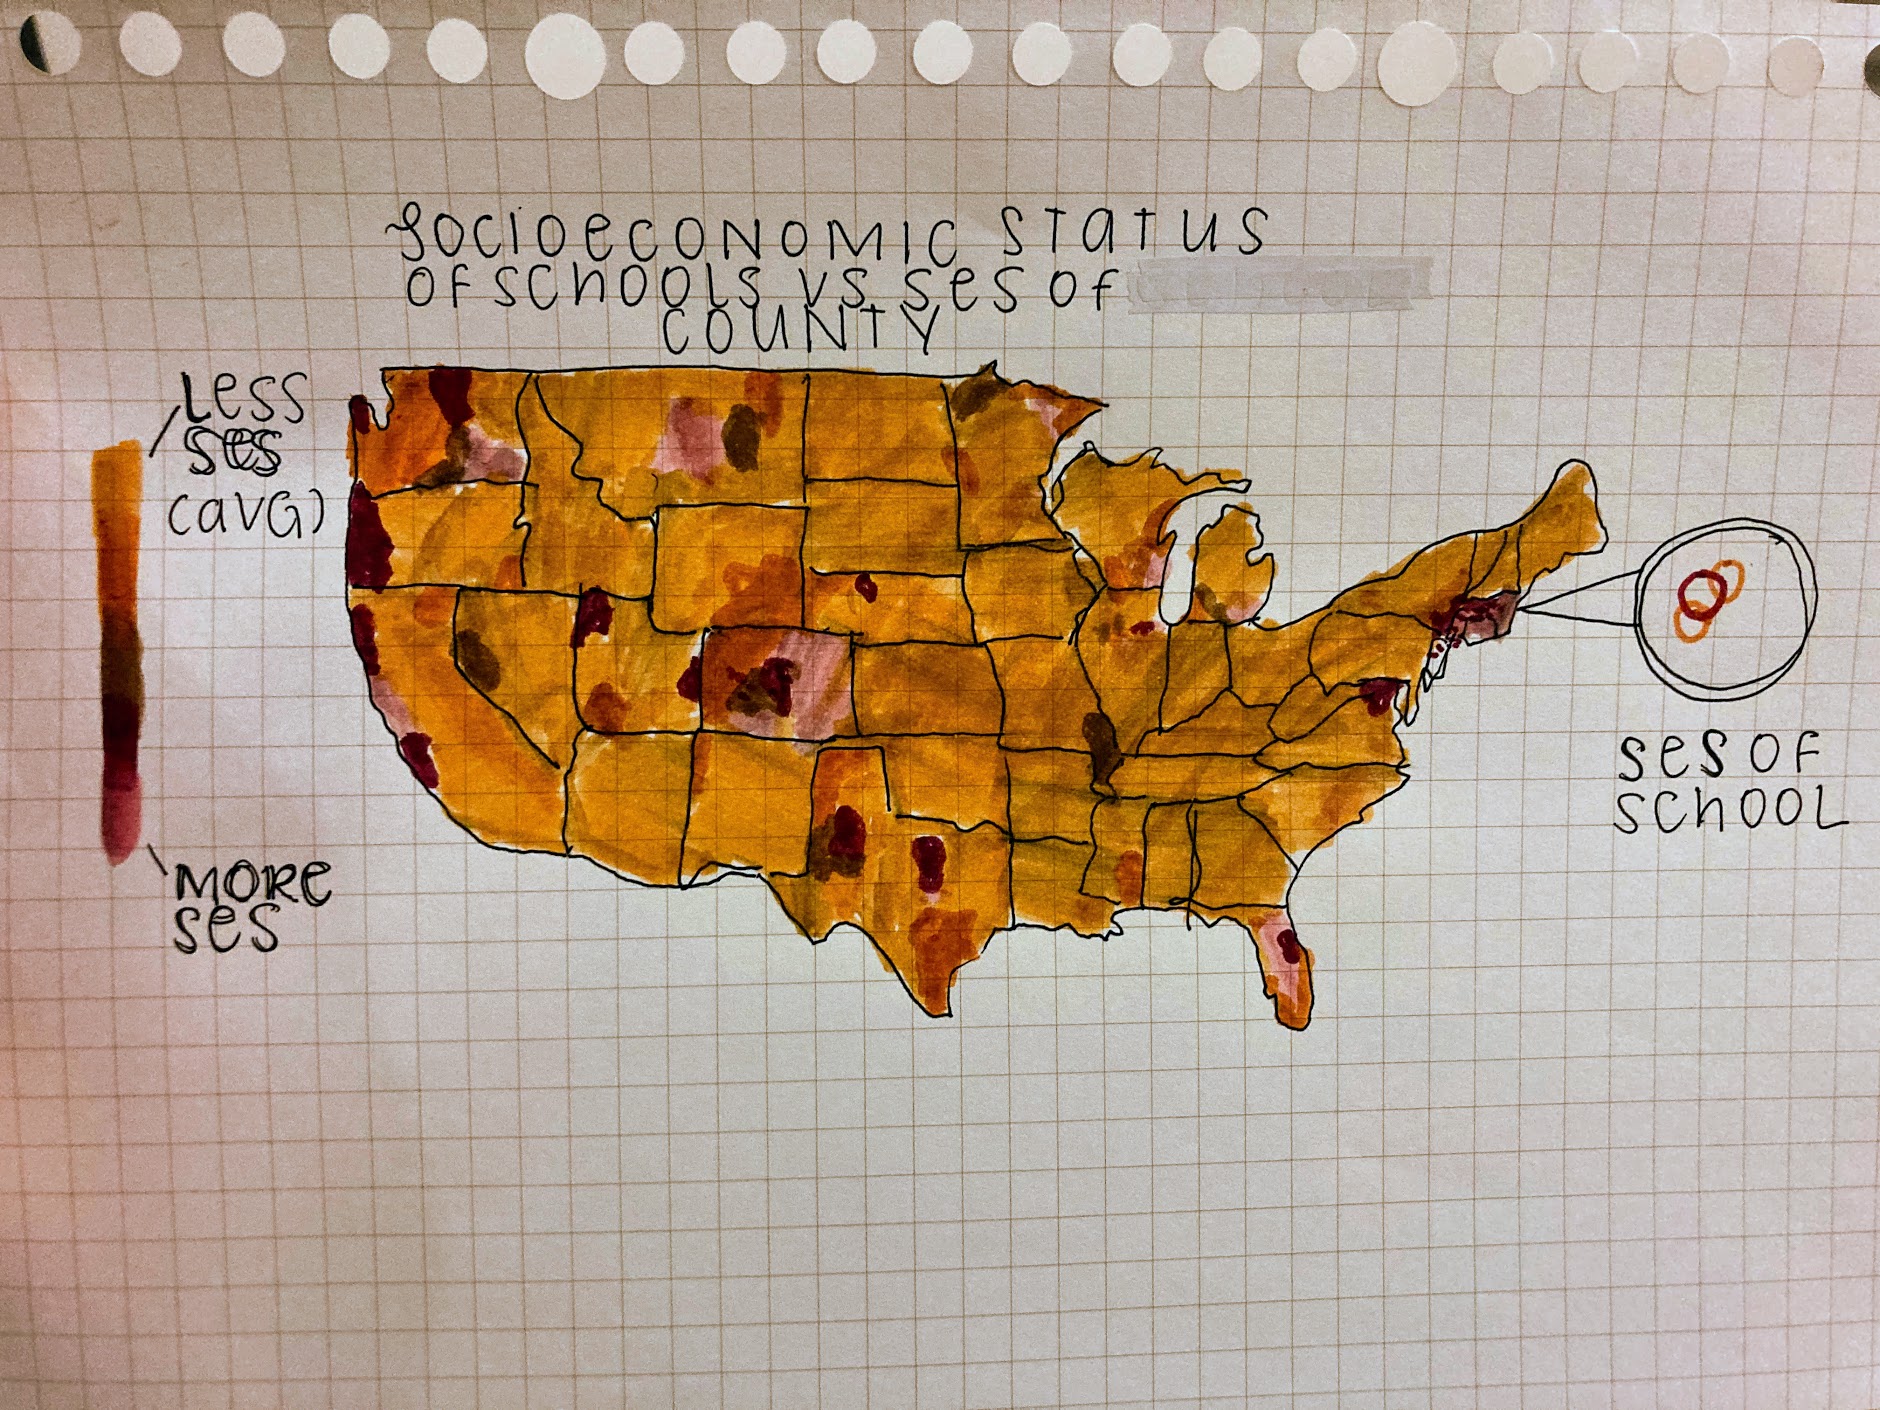 SOCIOECONOMIC STATUS
OF SCHOOLS VS SES OF
COUNTY
LESS
SES
(AVG)
MORE
SES
SES OF
SCHOOL